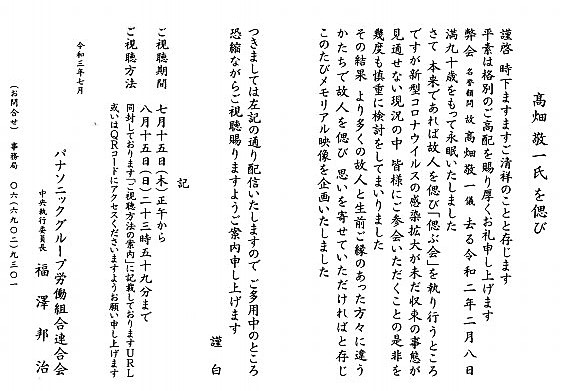 高畑敬一氏を偲び
謹啓 時下ますますご清祥のことと存じます
平素は格別のご高配を賜り厚くお礼申し上げます
弊会 名誉顧問 故 高畑敬一儀 去る令和二年二月八日
満九十歳をもって永眠いたしました
さて 本来であれば故人を偲び「偲ぶ会」を執り行うところ
ですが新型コロナウイルスの感染拡大が未だ収束の事態が
見通せない現況の中 皆様にご参会いただくことの是非を
幾度も慎重に検討をしてまいりました
その結果 より多くの故人と生前ご縁のあった方々に違う
かたちで故人を偲び 思いを寄せていただければと存じ
このたびメモリアル映像を企画いたしました
つきましては左記の通り配信いたしますので ご多用中のところ
恐縮ながらご視聴賜りますようご案内申し上げます
謹白
記
ご視聴期間 七月十五日(木)正午から
八月十五日(日)二十三時五十九分まで
ご視聴方法 同封しております「ご視聴方法の案内」に記載しておりますURL
或いはQRコードにアクセスくださいますようお願い申し上げます
令和三年七月
パナソニックグループ労働組合連合会
中央執行委員長 福澤邦治
(お問合せ) 事務局 〇六(六九〇二)九三〇一